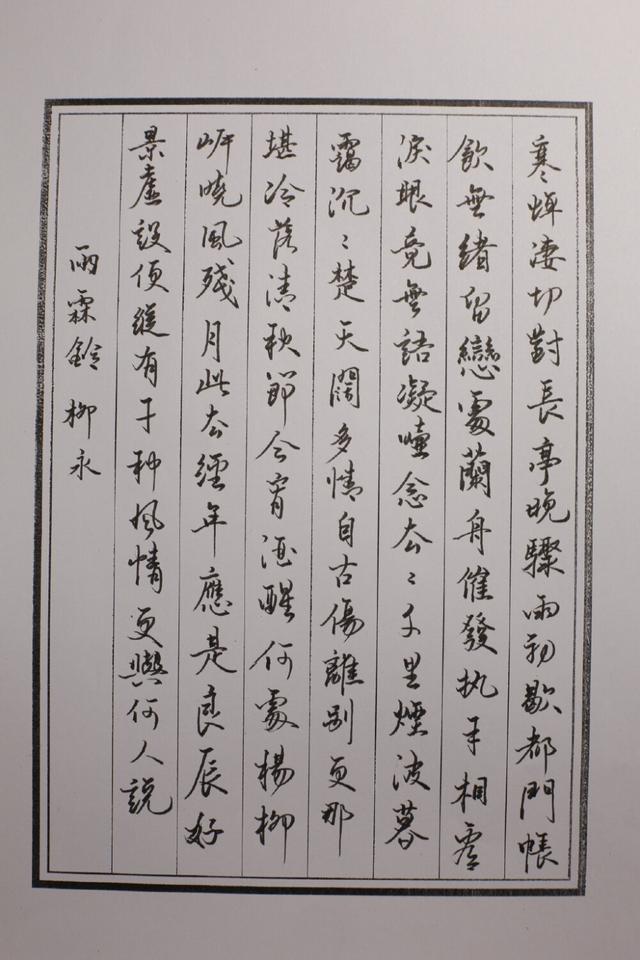 寒蟬凄切對長亭晚驟雨初歇都門帳
飲無緒留戀處蘭舟催發执手相看
淚眼竟無語凝噎念去々千里煙波暮
靄沉々楚天闊多情自古傷離别更那
堪冷落清秋節今宵酒醒何處楊柳
岸曉風殘月此去經年應是良辰好
景虛設便縱有千种風情更與何人說
雨霖鈴 柳永